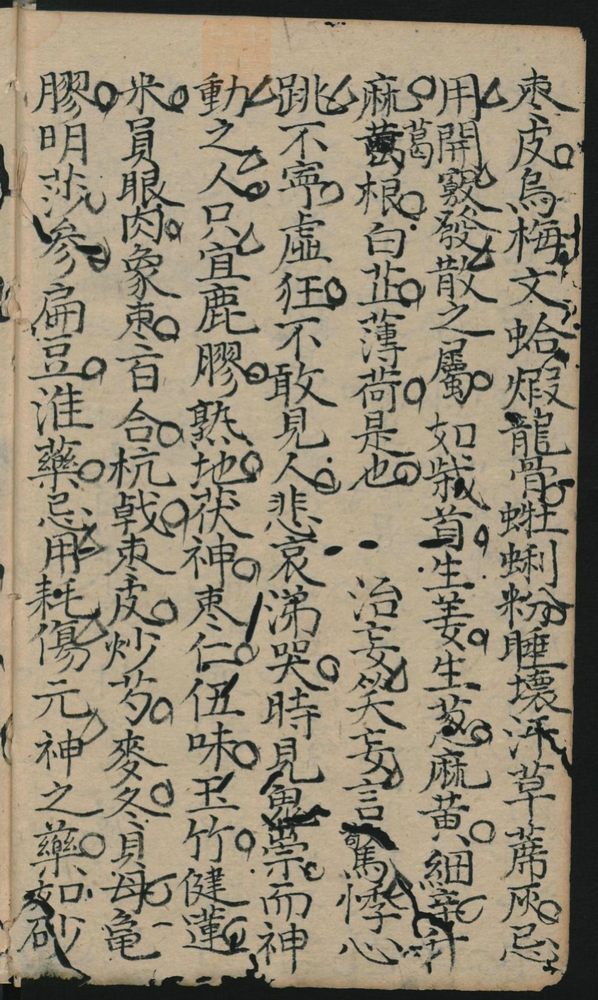 枣皮烏梅文蛤煆龍骨蜌蜊粉睡壞汗草蓆灰忌
用開竅發散之屬如柴首生姜生葱麻黃細辛升
麻葛根白芷薄荷是也治妄笑妄言驚悸心
跳不寧虛狂不敢見人悲哀涕哭時見鬼祟而神
動之人只宜鹿膠熟地茯神枣仁伍味玉竹健蓮
米員眼肉象枣百合杭戟枣皮炒芍麥冬貝母龜
膠明莎參扁豆淮藥忌用耗傷元神之藥如砂